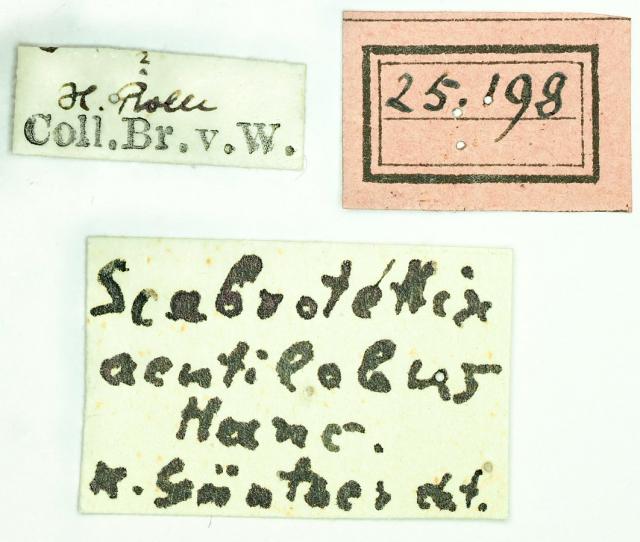 H. Rolle
Coll. Br. v. W.
25.198
Scabrotettix
acutilobus
Hanc.
K. Günther det.